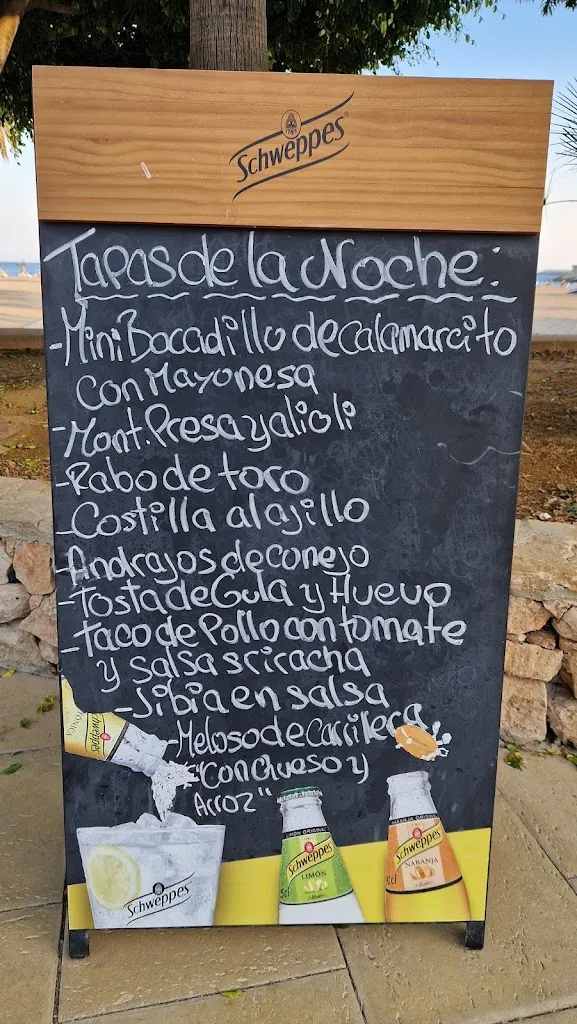 Schweppes
Tapas de la Noche:
-Mini Bocadillo de calamarcito
con Mayonesa
-Mont. Presa y alioli
-Rabo de toro
-Costilla al ajillo
-Andrajos de conejo
-Tosta de Gula y Huevo
-Taco de Pollo con tomate
y salsa sriracha
-Jibia en salsa
-Meloso de Carrillera
"Con Queso y
Arroz"
Schweppes
Schweppes
LIMÓN ORIGINAL
Schweppes
LIMÓN
NARANJA ORIGINAL
Schweppes
NARANJA